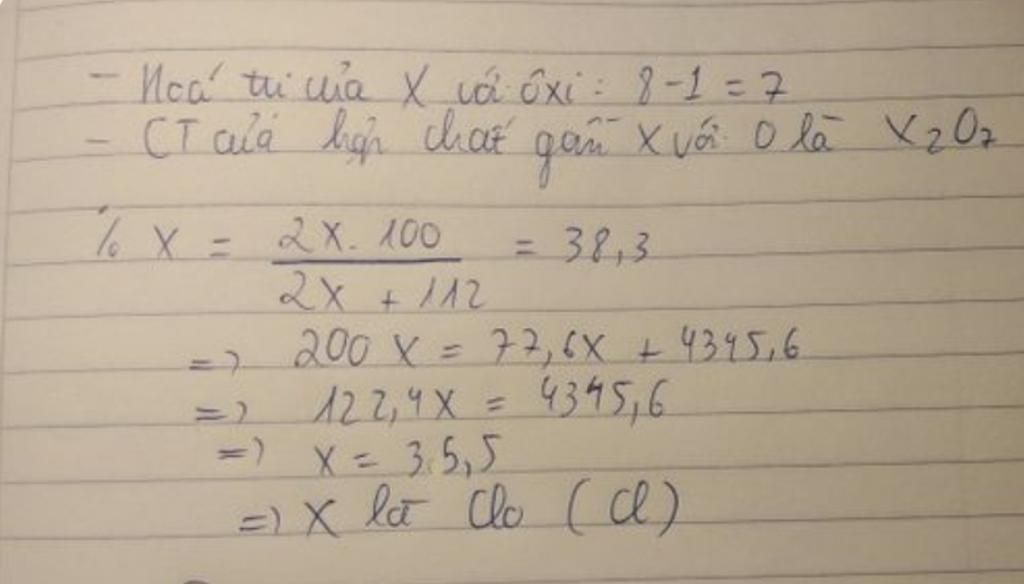 - Hoá trị của X với ôxi: 8-1 = 7
- CT của hợp chất gồm X với O là X₂O₇
% X = 2X. 100 / 2X + 112 = 38,3
=> 200 X = 77,6X + 4345,6
=> 122,4X = 4345,6
=> X = 35,5
=> X là Clo (Cl)